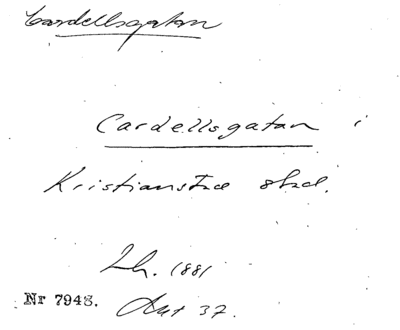 Cardellsgatan
Cardellsgatan i
Kristianstad stad.
Lh. 1881
Nr 7948. Ant 37.